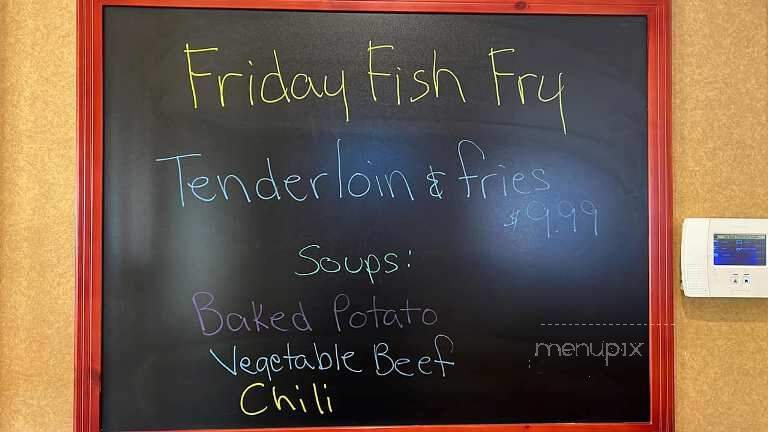 Friday Fish Fry
Tenderloin & fries
$9.99
Soups:
Baked Potato
Vegetable Beef
Chili
menupix